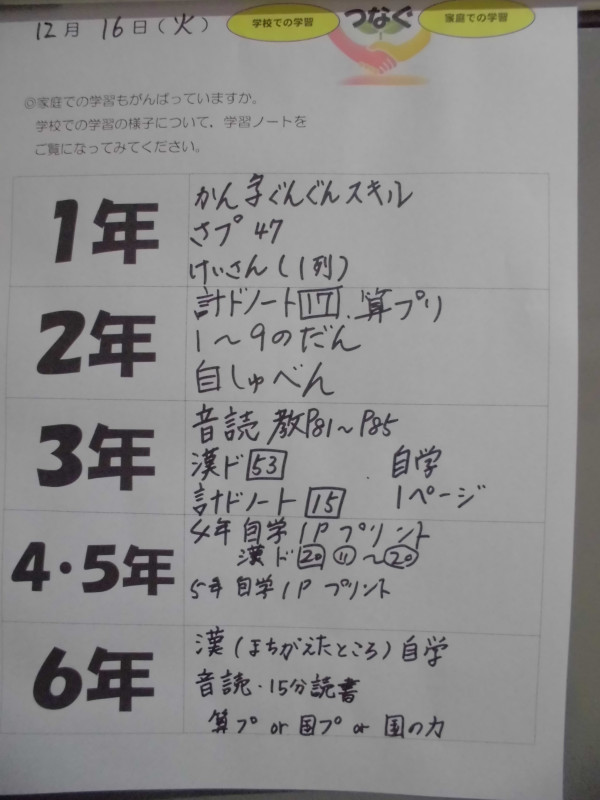 12月 16日(火)
学校での学習 つなぐ 家庭での学習
◎家庭での学習もがんばっていますか。
学校での学習の様子について、学習ノートを
ご覧になってみてください。
1年
かん字ぐんぐんスキル
さプ 47
けいさん(1列)
2年
計ドノート 17 . 算プリ
1〜9のだん
自しゅべん
3年
音読 教P81〜P85
漢ド 53 自学
計ドノート 15 1ページ
4・5年
4年 自学1P プリント
漢ド 20 ⑪〜⑳
5年 自学1P プリント
6年
漢(まちがえたところ)自学
音読・15分読書
算プ or 国プ or 国の力